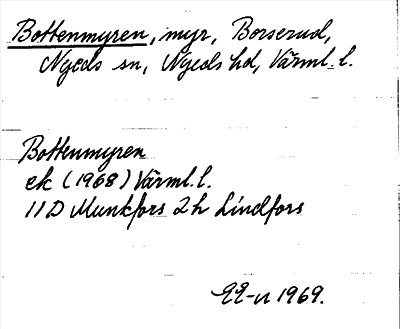 Bottenmyren, myr, Borserud,
Nyeds sn, Nyeds hd, Värml. l.
Bottenmyren
ek (1968) Värml. l.
11D Munkfors 2h Lindfors
1969.